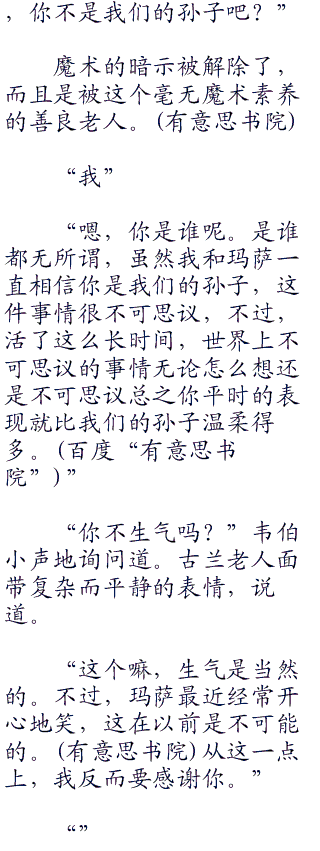 ，你不是我们的孙子吧？”
魔术的暗示被解除了，
而且是被这个毫无魔术素养
的善良老人。(有意思书院)
“我”
“嗯，你是谁呢。是谁
都无所谓，虽然我和玛萨一
直相信你是我们的孙子，这
件事情很不可思议，不过，
活了这么长时间，世界上不
可思议的事情无论怎么想还
是不可思议总之你平时的表
现就比我们的孙子温柔得
多。(百度“有意思书
院”)”
“你不生气吗？”韦伯
小声地询问道。古兰老人面
带复杂而平静的表情，说
道。
“这个嘛，生气是当然
的。不过，玛萨最近经常开
心地笑，这在以前是不可能
的。(有意思书院)从这一点
上，我反而要感谢你。”
“”